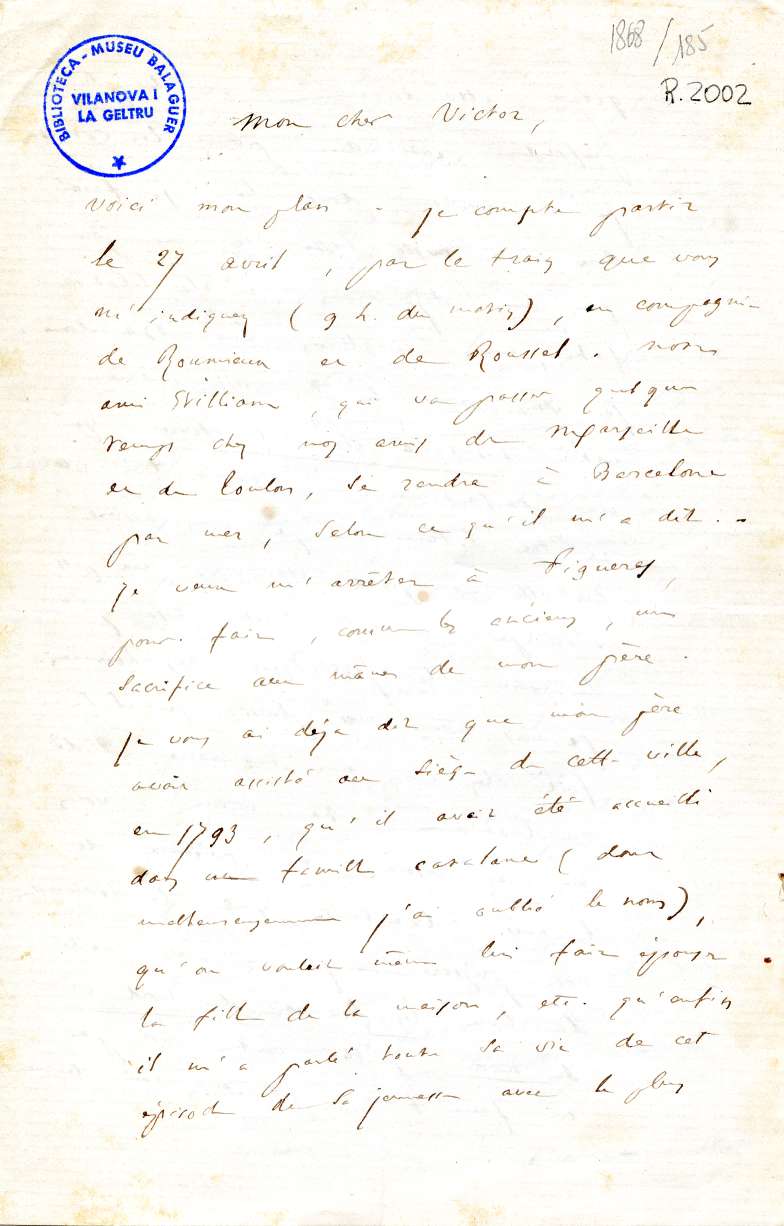 1868 / 185
R.2002
BIBLIOTECA - MUSEU BALAGUER
VILANOVA I
LA GELTRU
Mon cher Victor,
Voici mon plan - je compte partir
le 27 avril, par le train que vous
m'indiquez (9 h. du matin), en compagnie
de Roumieux et de Roussel. Notre
ami William, qui va passer quelque
temps chez nos amis de Marseille
et de Toulon, se rendra à Barcelone
par mer, selon ce qu'il m'a dit. -
je veux m'arrêter à Figueres,
pour faire, comme les anciens, un
sacrifice aux mânes de mon père.
je vous ai déja dit que mon père
avait assisté au siège de cette ville,
en 1793, qu'il avait été accueilli
dans une famille catalane (dont
malheureusement j'ai oublié le nom),
qu'on voulait même lui faire épouser
la fille de la maison, etc. qu'enfin
il m'a parlé toute sa vie de cet
épisode de sa jeunesse avec le plus